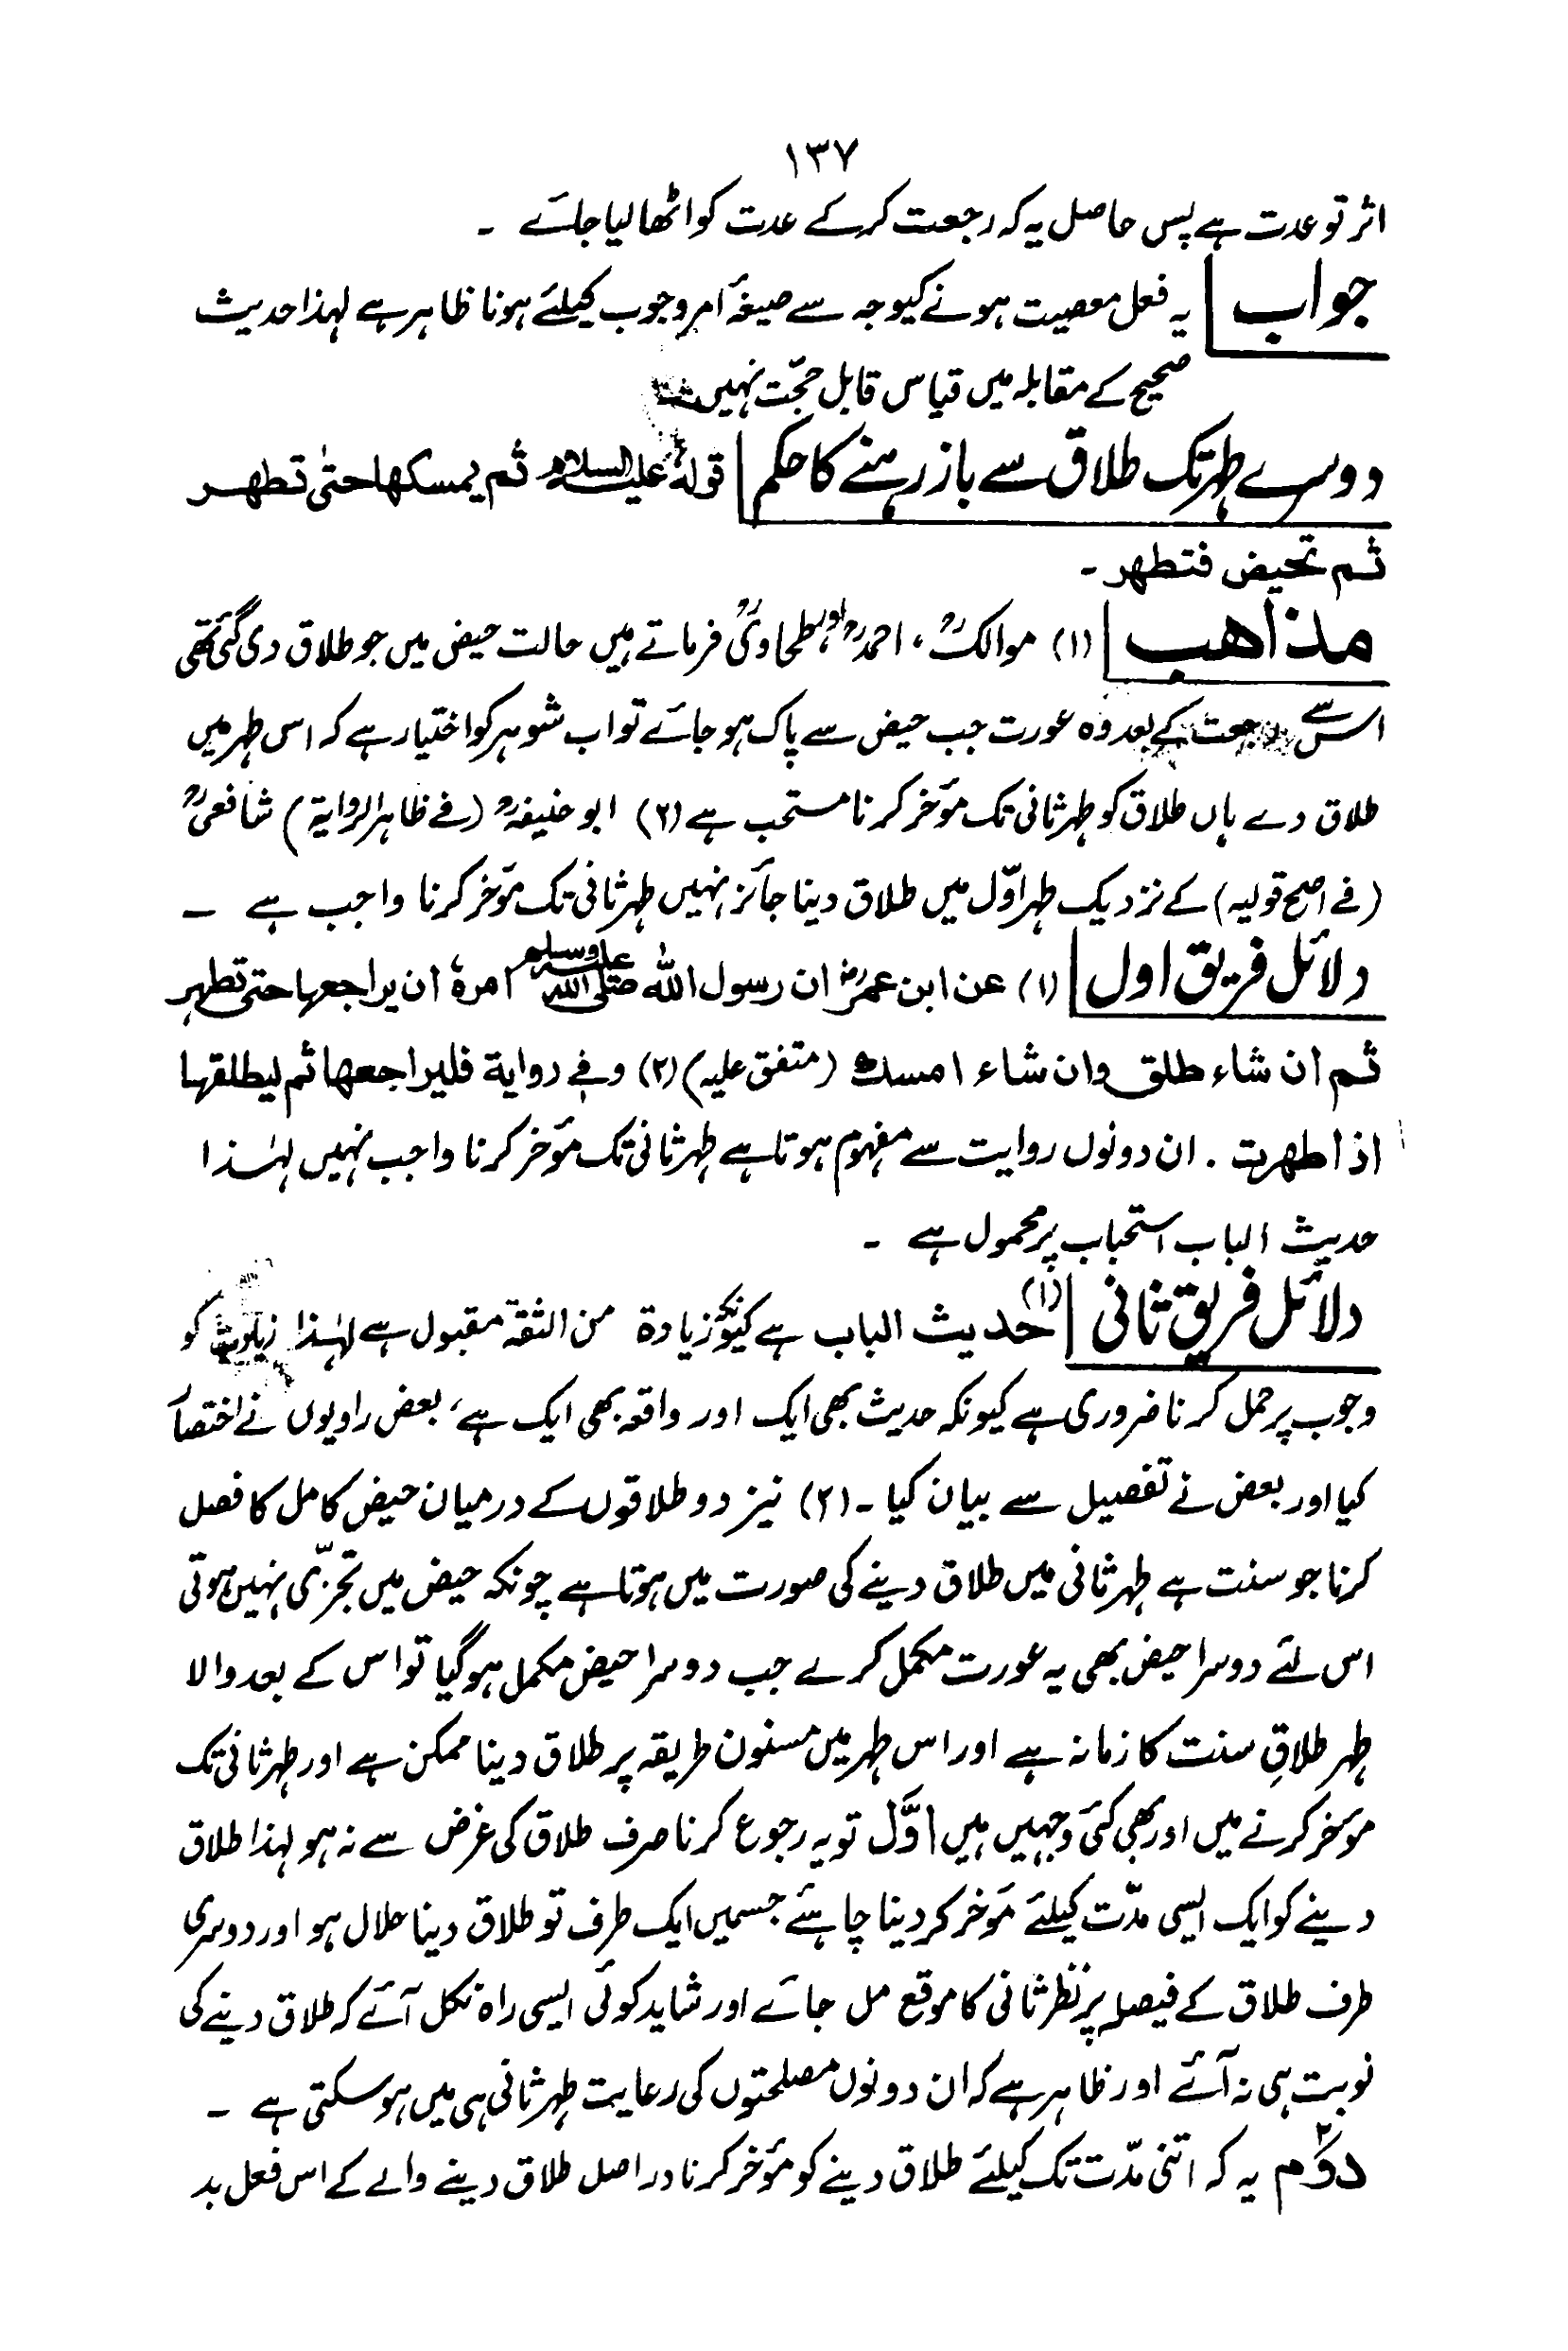 ۱۳۷
اثر تو عدت ہے پس حاصل یہ کہ رجعت کرکے عدت کو اٹھا لیا جائے ۔
جواب یہ فعل معصیت ہونے کیوجہ سے صیغۂ امر وجوب کیلئے ہونا ظاہر ہے لہذا حدیث
صحیح کے مقابلہ میں قیاس قابل حجّت نہیں
دوسرے طہر تک طلاق سے باز رہنے کا حکم قولہٗ علیہ السلام ثم یمسکھا حتیٰ تطھر
ثم تحیض فتطھر ۔
مذاھب (۱) موالکؒ ، احمدؒ اور طحاویؒ فرماتے ہیں حالت حیض میں جو طلاق دی گئی تھی
اس سے رجعت کے بعد وہ عورت جب حیض سے پاک ہو جائے تو اب شوہر کو اختیار ہے کہ اس طہر میں
طلاق دے ہاں طلاق کو طہر ثانی تک مؤخر کرنا مستحب ہے (۲) ابو حنیفہؒ (فے ظاہر الروایۃ) شافعیؒ
(فے اصح قولیہ) کے نزدیک طہر اوّل میں طلاق دینا جائز نہیں طہر ثانی تک مؤخر کرنا واجب ہے ۔
دلائل فریق اول (۱) عن ابن عمرؓ ان رسول اللہ صلی اللہ علیہ وسلم امرہٗ ان یراجعہا حتی تطہر
ثم ان شاء طلق وان شاء امسک (متفق علیہ) (۲) وفی روایۃ فلیراجعھا ثم لیطلقہا
اذا طھرت . ان دونوں روایت سے مفہوم ہوتا ہے طہر ثانی تک مؤخر کرنا واجب نہیں لہٰذا
حدیث الباب استحباب پر محمول ہے ۔
دلائل فریق ثانی (۱) حدیث الباب ہے کیونکہ زیادۃ من الثقۃ مقبول ہے لہٰذا زیادت کو
وجوب پر حمل کرنا ضروری ہے کیونکہ حدیث بھی ایک اور واقعہ بھی ایک ہے، بعض راویوں نے اختصاراً
کیا اور بعض نے تفصیل سے بیان کیا ۔ (۲) نیز دو طلاقوں کے درمیان حیض کامل کا فصل
کرنا جو سنت ہے طہر ثانی میں طلاق دینے کی صورت میں ہوتا ہے چونکہ حیض میں تجزّی نہیں ہوتی
اس لئے دوسرا حیض بھی یہ عورت مکمل کرے جب دوسرا حیض مکمل ہوگیا تو اس کے بعد والا
طہر طلاقِ سنت کا زمانہ ہے اور اس طہر میں مسنون طریقہ پر طلاق دینا ممکن ہے اور طہر ثانی تک
مؤخر کرنے میں اور بھی کئی وجہیں ہیں اوّل تو یہ رجوع کرنا صرف طلاق کی غرض سے نہ ہو لہذا طلاق
دینے کو ایک ایسی مدّت کیلئے مؤخر کر دینا چاہئے جسمیں ایک طرف تو طلاق دینا حلال ہو اور دوسری
طرف طلاق کے فیصلہ پر نظر ثانی کا موقع مل جائے اور شاید کوئی ایسی راہ نکل آئے کہ طلاق دینے کی
نوبت ہی نہ آئے اور ظاہر ہے کہ ان دونوں مصلحتوں کی رعایت طہر ثانی ہی میں ہو سکتی ہے ۔
دوّم یہ کہ اتنی مدّت تک کیلئے طلاق دینے کو مؤخر کرنا دراصل طلاق دینے والے کے اس فعل بد